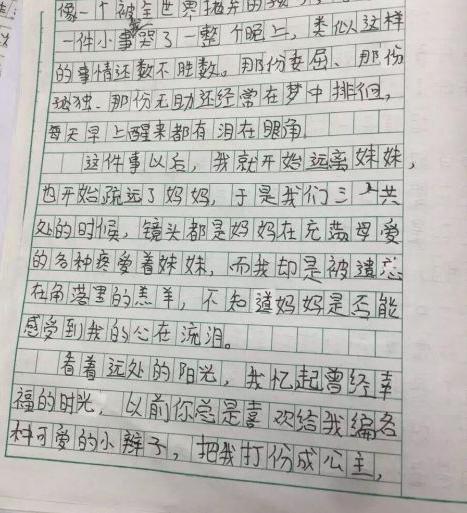 像一个被全世界抛弃的孩子,
一件小事哭了一整个晚上,类似这样
的事情还数不胜数。那份委屈、那份
孤独、那份无助还经常在梦中排徊,
每天早上醒来都有泪在眼角
这件事以后,我就开始远离妹妹,
也开始疏远了妈妈,于是我们三人共
处的时候,镜头都是妈妈在充满母爱
的各种疼爱着妹妹,而我却是被遗忘
在角落里的羔羊,不知道妈妈是否能
感受到我的心在流泪。
看着远处的阳光,我忆起曾经幸
福的时光,以前你总是喜欢给我编各
种可爱的小辫子,把我打份成公主,